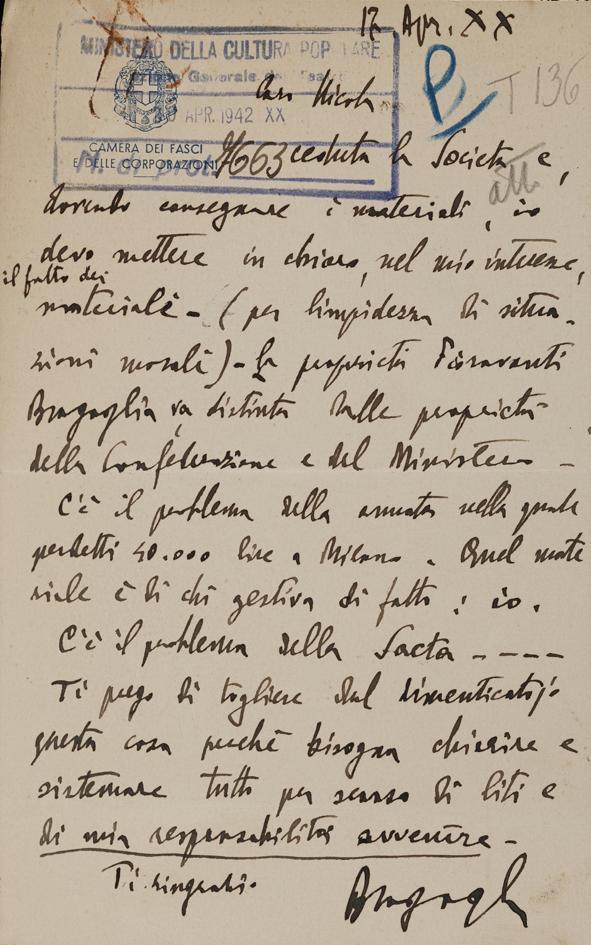 17. Apr. XX
MINISTERO DELLA CULTURA POPOLARE
Generale
20 APR. 1942 XX
P
T 136
Caro Nicola
CAMERA DEI FASCI
E DELLE CORPORAZIONI
N. di prot. 7663
ceduta la Società e,
att.
dovendo consegnare i materiali, io
devo mettere in chiaro, nel mio interesse,
il fatto dei
materiali - (per limpidezza di situa-
zioni morali) - la proprietà Fioravanti
Bragaglia va distinta dalle proprietà
della Confederazione e del Ministero -
C'è il problema della annata nella quale
perdetti 40.000 lire a Milano. Quel mate
riale è di chi gestiva di fatto: io.
C'è il problema della Sacta ----
Ti prego di togliere dal dimenticatojo
questa cosa perché bisogna chiarire e
sistemare tutto per scanso di liti e
di mia responsabilità avvenire -
Ti ringrazio
Bragaglia